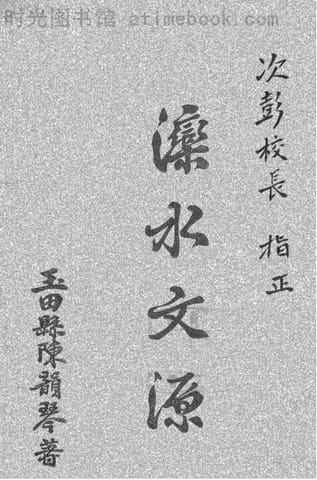 时光图书馆 atimebook.com
次彭校長 指正
灤水文源
玉田縣陳韻琴著